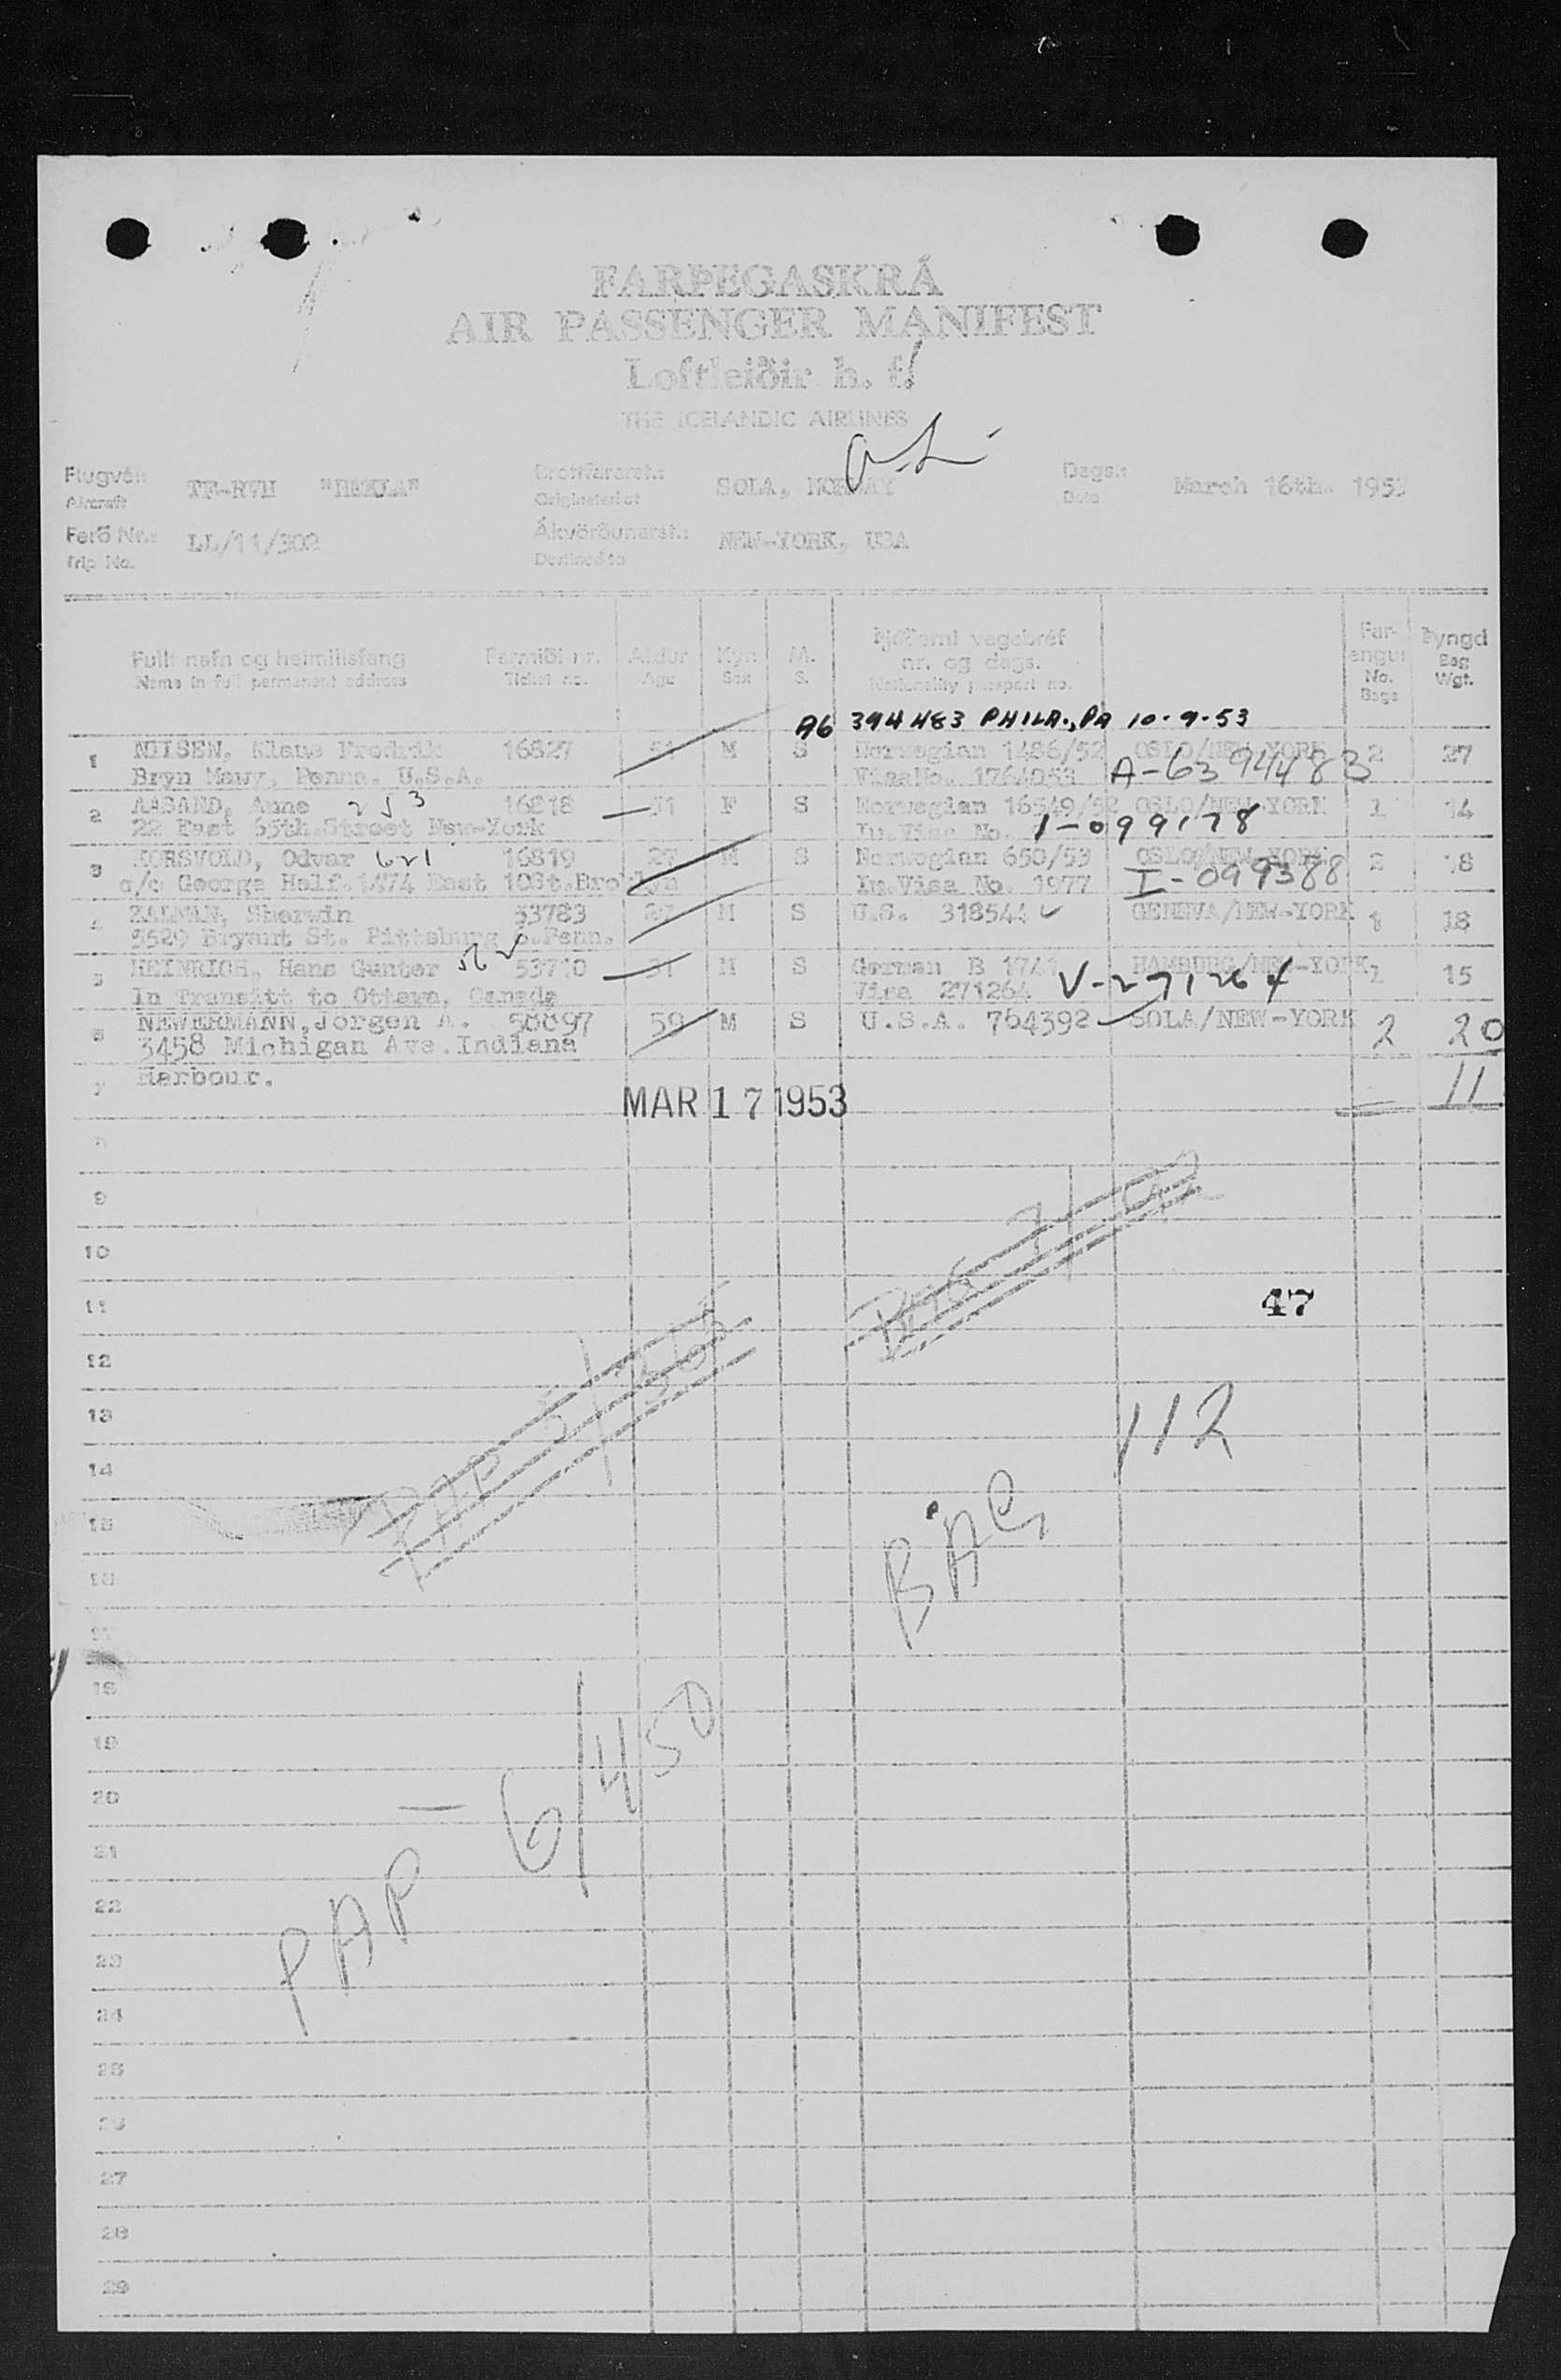 FARÞEGASKRÁ
AIR PASSENGER MANIFEST
Loftleiðir h. f.
THE ICELANDIC AIRLINES
Flugvél: Aircraft TF-RVH "HEKLA" Brottfararst.: Originated at SOLA, NORWAY Dags.: Date March 16th. 1953
Ferð Nr.: Trip No. LL/11/302 Ákvörðunarst.: Destined to NEW-YORK, USA
Fullt nafn og heimilisfang Farmiði nr. Aldur Kyn M. Þjóðerni vegabréf nr. og dags. Far-angur Þyngd
Name in full permanent address Ticket no. Age Sex S. Nationality passport no. No. Bags Bag Wgt.
A6 394 483 PHILA., PA 10-9-53
1 Klaus Fredrik 16827 51 M S Norwegian 1486/52 OSLO/NEW-YORK 2 27
Bryn Mawy, Penna. U.S.A. Visa No. 1764053 A-6394483
2 AASAND, Anne 253 16818 F S Norwegian 16549/52 OSLO/NEW-YORK 1 14
22 East 65th.Street New-York Im.Visa No. I-099178
3 Odvar 621 16819 M S Norwegian 650/53 OSLO/NEW-YORK 2 18
c/o George Half.1474 East 10St.Broklyn Im.Visa No. 1977 I-099388
4 ZALMAN, Sherwin 53783 M S U.S. 318544 GENEVA/NEW-YORK 1 18
5529 Bryant St. Pittsburg 6.Penn.
5 HEINRICH, Hans Gunter 53710 31 M S German B HAMBURG/NEW-YORK 1 15
In Transitt to Ottawa, Canada Visa 271264 V-271264
6 NEWERMANN, Jorgen A. 50097 50 M S U.S.A. 764392 SOLA/NEW-YORK 2 20
3458 Michigan Ave. Indiana
7 Harbour. 11
MAR 17 1953
8
9
10
11 47
12
13 112
14
15 BAG
16
17
18
19
20 6/450
21
22 PAP
23
24
25
26
27
28
29